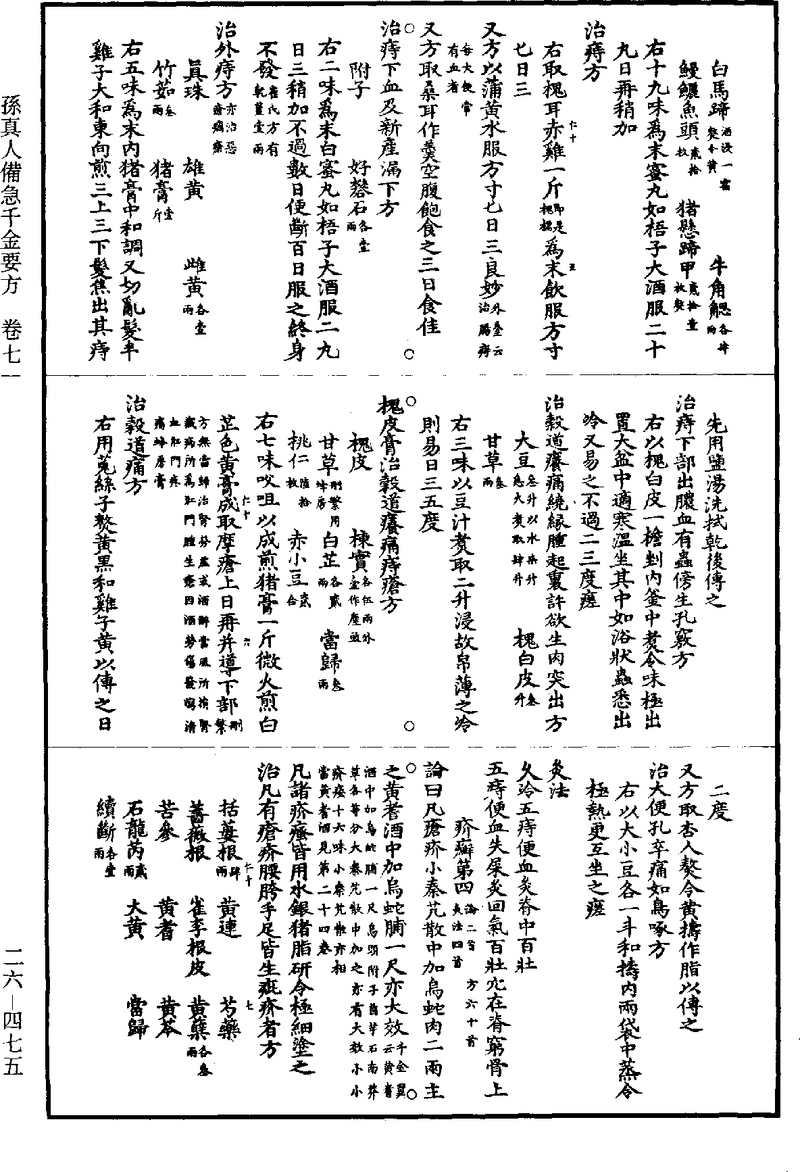 白馬蹄 酒浸一宿熬令黃 牛角䚡 各肆兩
鰻鱺魚頭 貳拾枚 猪懸蹄甲 貳拾壹枚熬
右十九味為末蜜丸如梧子大酒服二十
九日再稍加
治痔方
右取槐耳赤雞一斤 即是槐檽 為末飲服方寸
匕日三
又方以蒲黃水服方寸匕日三良妙 外臺云治腸痔
每大便常有血者
又方取桑耳作羹空腹飽食之三日食佳
治痔下血及新產漏下方
附子 好礬石 各壹兩
右二味為末白蜜丸如梧子大酒服二丸
日三稍加不過數日便斷百日服之終身
不發 崔氏方有乾薑壹兩
治外痔方 亦治惡瘡痛瘡
真珠 雄黃 雌黃 各壹兩
竹茹 叁兩 猪膏 壹斤
右五味為末內猪膏中和調又切亂髮半
雞子大和東向煎三上三下髮焦出其痔
先用鹽湯洗拭乾後傅之
治痔下部出膿血有蟲傍生孔竅方
右以槐白皮一檐剉內釜中煮令味極出
置大盆中適寒溫坐其中如浴狀蟲悉出
冷又易之不過二三度瘥
治穀道癢痛繞緣腫起裏許欲生肉突出方
大豆 叁升以水柒升急火煮取肆升 槐白皮 叁升
甘草 叁兩
右三味以豆汁煮取二升浸故帛薄之冷
則易日三五度
槐皮膏治穀道癢痛痔瘡方
槐皮 楝實 各伍兩外臺作塵豉
甘草 刪繁用蜂房 白芷 各貳兩 當歸 叁兩
桃仁 陸拾枚 赤小豆 貳合
右七味㕮咀以成煎猪膏一斤微火煎白
芷色黃膏成取摩瘡上日再并導下部 刪繁
方無當歸治腎勞虛或酒醉當風所損腎
藏病所為肛門腫生瘡因酒勞傷發瀉清
血肛門疼痛蜂房膏
治穀道痛方
右用菟絲子熬黃黑和雞子黃以傅之日
二度
又方取杏人熬令黃擣作脂以傅之
治大便孔卒痛如鳥啄方
右以大小豆各一斗和擣內兩袋中蒸令
極熱更互坐之瘥
灸法
久冷五痔便血灸脊中百壯
五痔便血失屎灸回氣百壯穴在脊窮骨上
疥癬第四 論二首 方六十首 灸法四首
論曰凡瘡疥小秦艽散中加烏蛇肉二兩主
之黃耆酒中加烏蛇脯一尺亦大效 千金翼云黃耆
酒中加烏蛇脯一尺烏頭附子茵芋石南莽
草各等分大秦艽散中加之亦有大效小小
疥瘙十六味小秦艽散亦相
當黃耆酒見第二十四卷
凡諸疥瘙皆用水銀猪脂研令極細塗之
治凡有瘡疥腰胯手足皆生疵疥者方
栝蔞根 肆兩 黃連 芍藥
薔薇根 雀李根皮 黃蘗 各叁兩
苦參 黃耆 黃芩
石龍芮 貳兩 大黃 當歸
續斷 各壹兩
孫真人備急千金要方 卷七一
二六—四七五